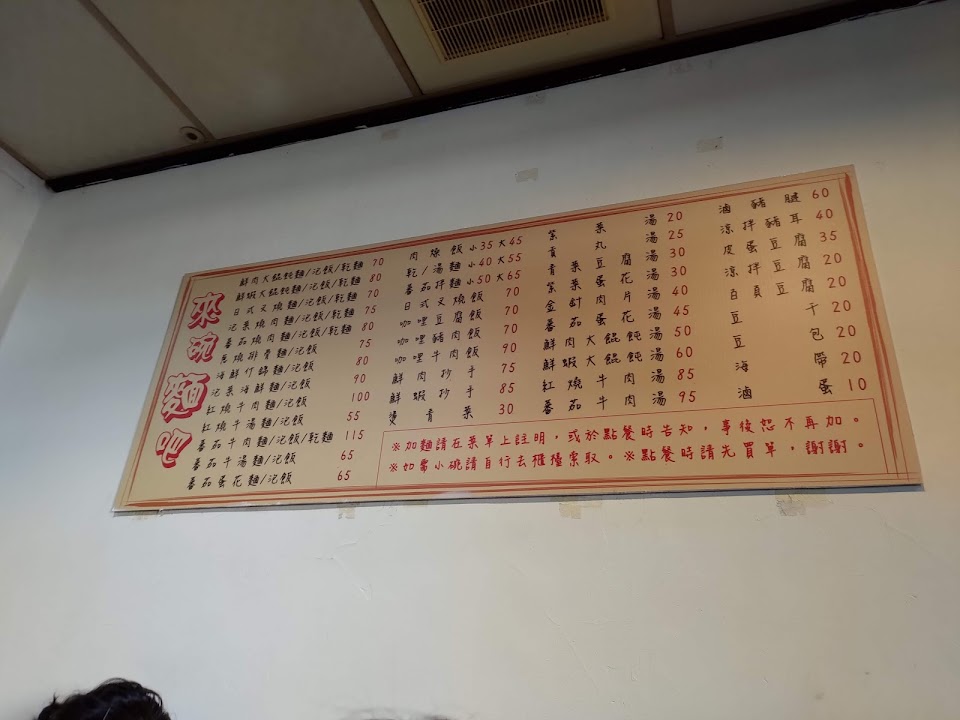 來碗麵吧
鮮肉大餛飩麵/泡飯/乾麵 70
鮮蝦大餛飩麵/泡飯/乾麵 80
日式叉燒麵/泡飯/乾麵 70
泡菜燒肉麵/泡飯/乾麵 75
番茄燒肉麵/泡飯/乾麵 80
蔥燒排骨麵/泡飯 75
海鮮什錦麵/泡飯 80
泡菜海鮮麵/泡飯 90
紅燒牛肉麵/泡飯 100
紅燒牛湯麵/泡飯 55
番茄牛肉麵/泡飯/乾麵 115
番茄牛湯麵/泡飯 65
番茄蛋花麵/泡飯 65
肉燥飯 小35 大45
乾/湯麵 小40 大55
番茄拌麵 小50 大65
日式叉燒飯 70
咖哩豆腐飯 70
咖哩豬肉飯 70
咖哩牛肉飯 90
鮮肉抄手 75
鮮蝦抄手 85
燙青菜 30
紫菜湯 20
貢丸湯 25
青菜豆腐湯 30
紫菜蛋花湯 30
金針肉片湯 40
番茄蛋花湯 45
鮮肉大餛飩湯 50
鮮蝦大餛飩湯 60
紅燒牛肉湯 85
番茄牛肉湯 95
滷豬腱 60
涼拌豬耳 40
皮蛋豆腐 35
涼拌豆腐 20
百頁豆腐 20
豆干 20
豆包 20
海帶 20
滷蛋 10
※加麵請在菜單上註明，或於點餐時告知，事後恕不再加。
※如需小碗請自行去櫃檯索取。※點餐時請先買單，謝謝。